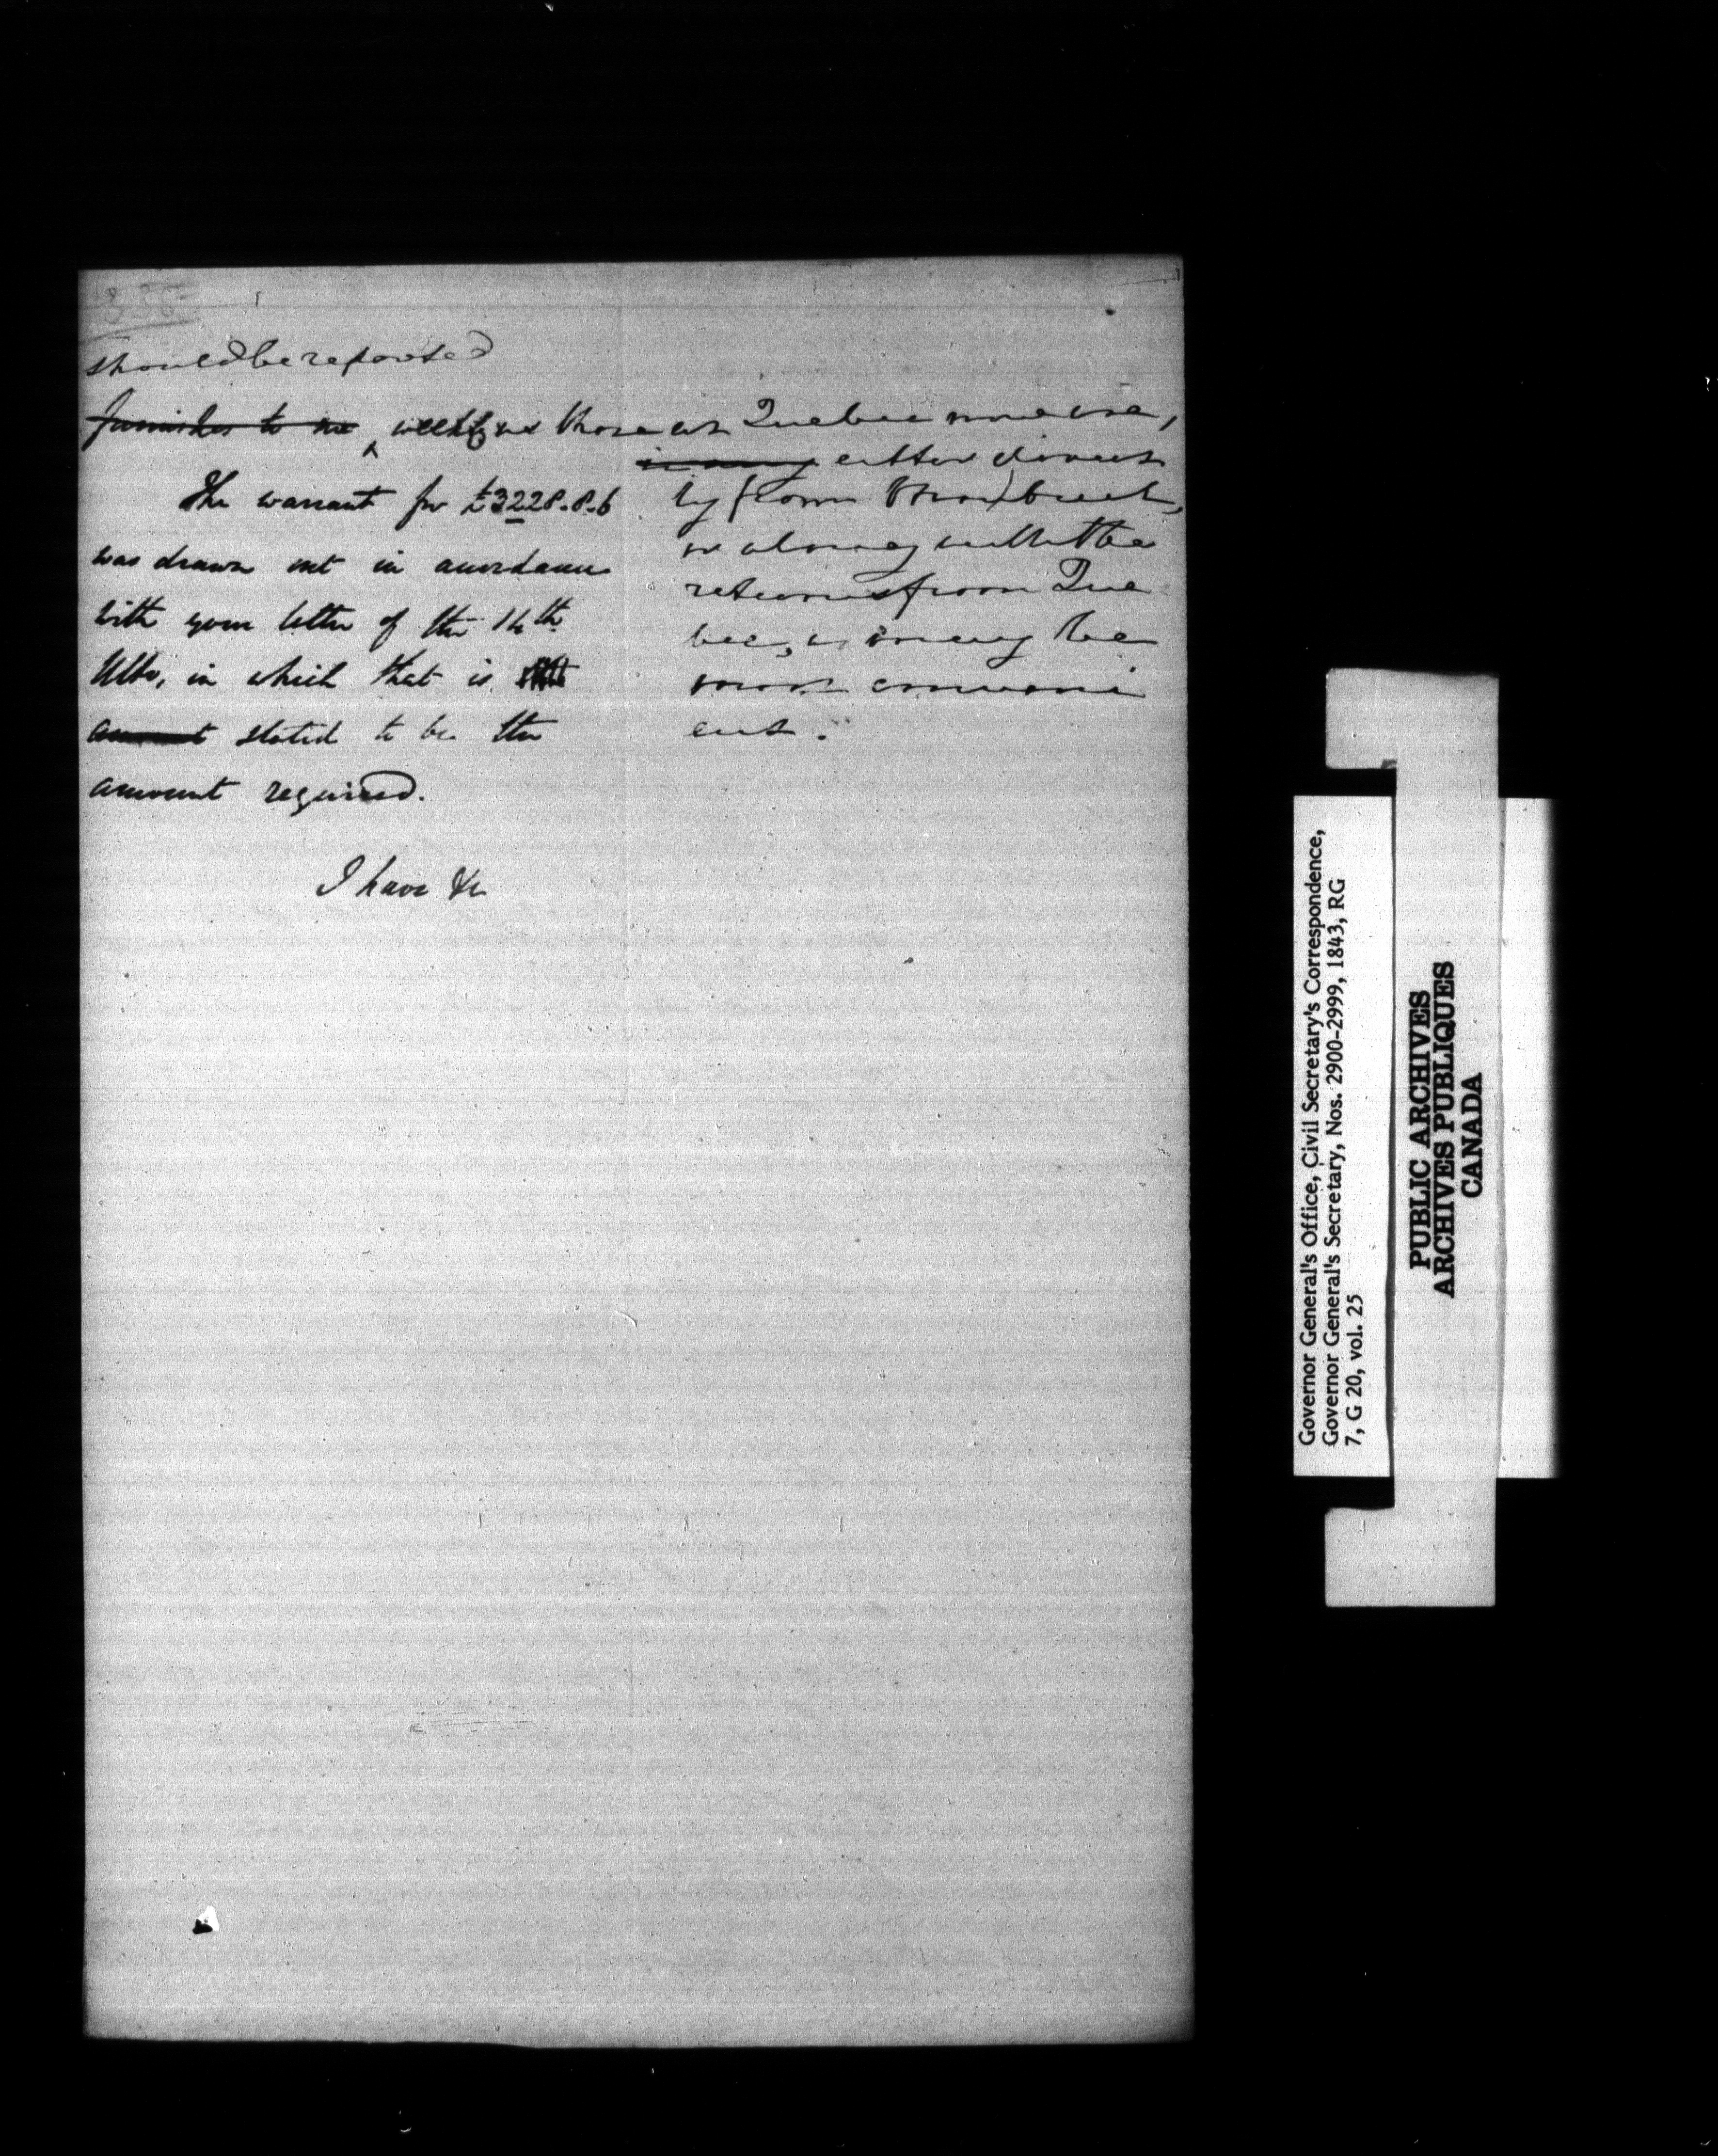 should be reported
furnished to me weekly as those at Quebec now are,
The warrant for £3228.8.6
was drawn out in accordance
with your letter of the 14th
Ulto, in which that is
amount stated to be the
amount required.
I have &c
in any either direct
ly from Montreal,
or along with the
returns from Que
bec, as may be
most conveni
ent.
Governor General's Office, Civil Secretary's Correspondence,
Governor General's Secretary, Nos. 2900-2999, 1843, RG
7, G 20, vol. 25
PUBLIC ARCHIVES
ARCHIVES PUBLIQUES
CANADA